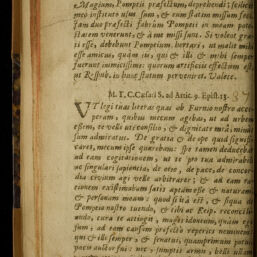 eMagium, Pompeii præfectum, deprehendi; scilicet
meo instituto usus sum, & eum statim missum feci.
Jam duo præfecti fabrûm Pompeii in meam potestatem
statem venerunt, & à me missi sunt. Si volent grati
ti esse, debebunt Pompeium hortari, ut malit mihi
esse amicus, quàm iis, qui & illi & mihi semper
fuerunt inimicissimi: quorum artificiis effectum est
ut Respub. in hunc statum perveniret. Valete.
M. T. C. Cæsari S. ad Attic. 9. Epist. 13.
VT legi tuas literas quas ab Furnio nostro acce
peram, quibus mecum agebas, ut ad urbem
essem, te velle uti consilio, & dignitate mea, minus
sum admiratus. De gratia & de ope quid significares
cares, mecum ipse quærebam: spe tamen deducebar
ad eam cogitationem, ut te pro tua admirabili
ac singulari sapientia, de otio, de pace, de concordia
dia civium agi velle arbitrarer; & ad eam rationem
tionem existimabam satis aptam esse & naturam
& personam meam: quod si ita est, & si qua de
Pompeio nostro tuendo, & tibi ac Reip. reconciliando
ando, cura te attingit, magis idoneum, quàm ego
sum, ad eam causam profecto reperies neminem:
qui & illi semper, & senatui, quum primum potui,
pacis auctor fui: nec, sumptis armis, belli ullam